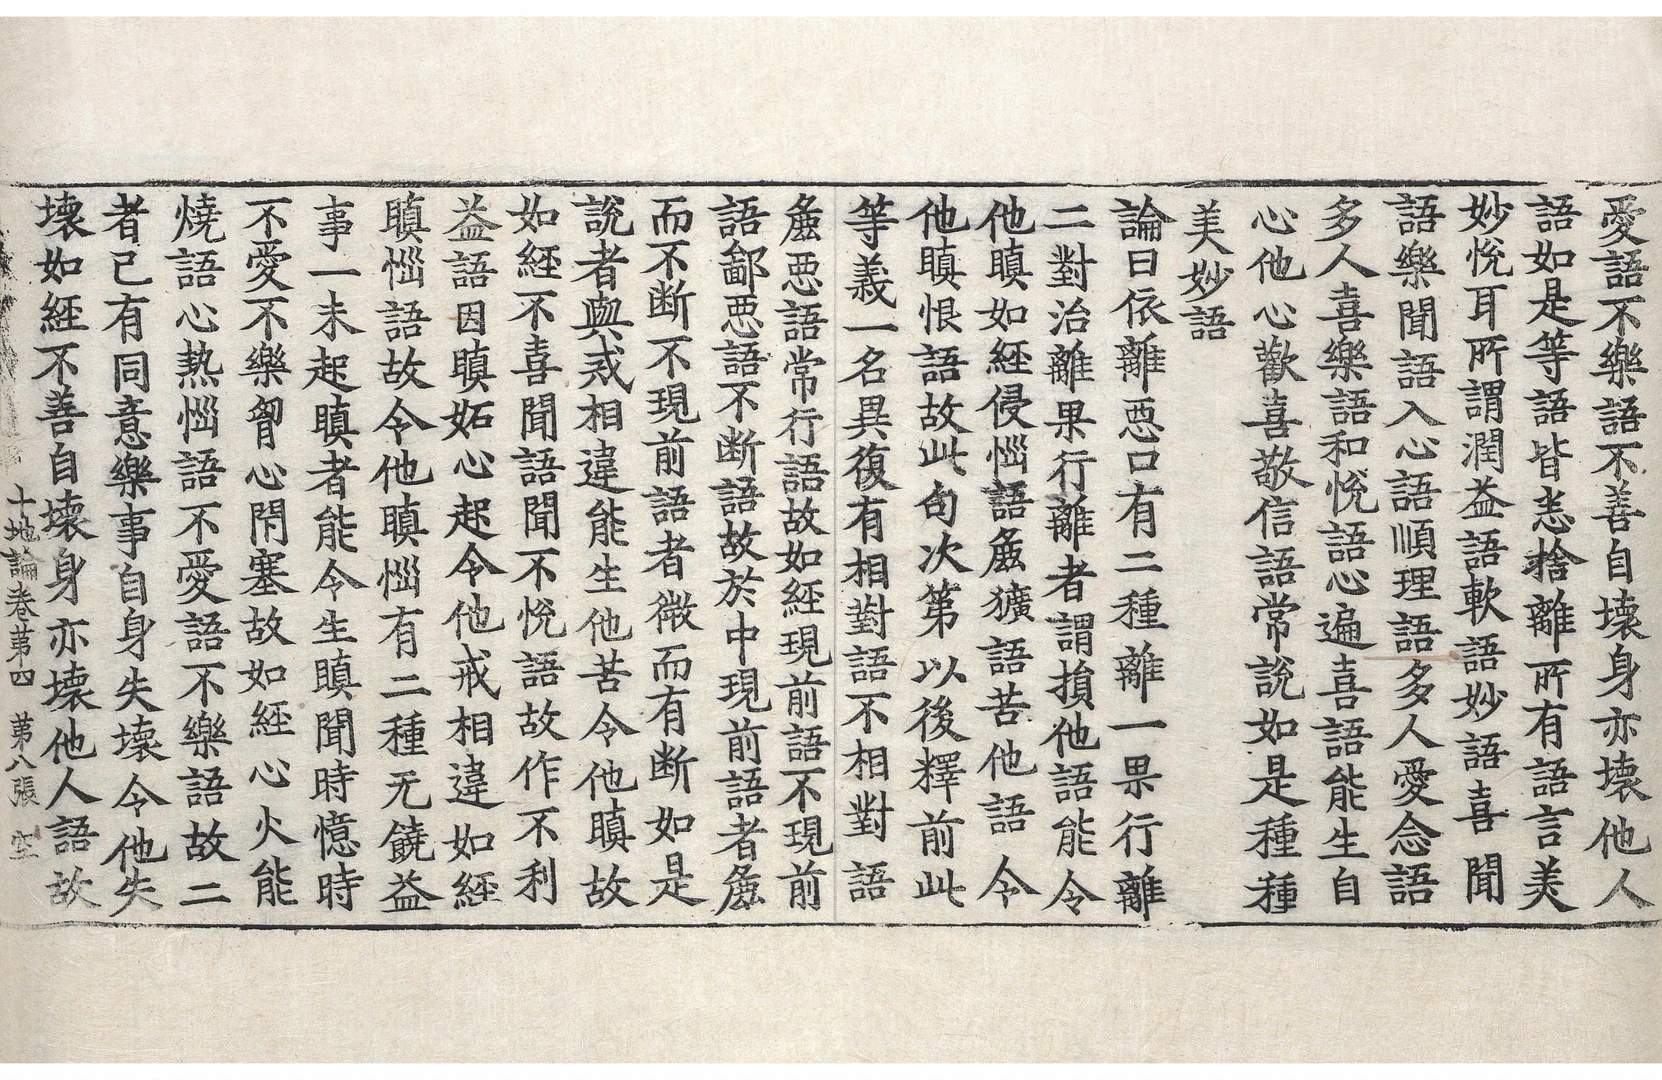 愛語不樂語不善自壞身亦壞他人
語如是等語皆悉捨離所有語言美
妙悅耳所謂潤益語軟語妙語喜聞
語樂聞語入心語順理語多人愛念語
多人喜樂語和悅語心遍喜語能生自
心他心歡喜敬信語常說如是種種
美妙語
論曰依離惡口有二種離一果行離
二對治離果行離者謂損他語能令
他瞋如經侵惱語麁獷語苦他語令
他瞋恨語故此句次第以後釋前此
等義一名異復有相對語不相對語
麁惡語常行語故如經現前語不現前
語鄙惡語不断語故於中現前語者麁
而不断不現前語者微而有断如是
說者與戒相違能生他苦令他瞋故
如經不喜聞語聞不悅語故作不利
益語因瞋妬心起令他戒相違如經
瞋惱語故令他瞋惱有二種无饒益
事一未起瞋者能令生瞋聞時憶時
不愛不樂胷心閇塞故如經心火能
燒語心熱惱語不愛語不樂語故二
者已有同意樂事自身失壞令他失
壞如經不善自壞身亦壞他人語故
十地論卷第四　第八張　空